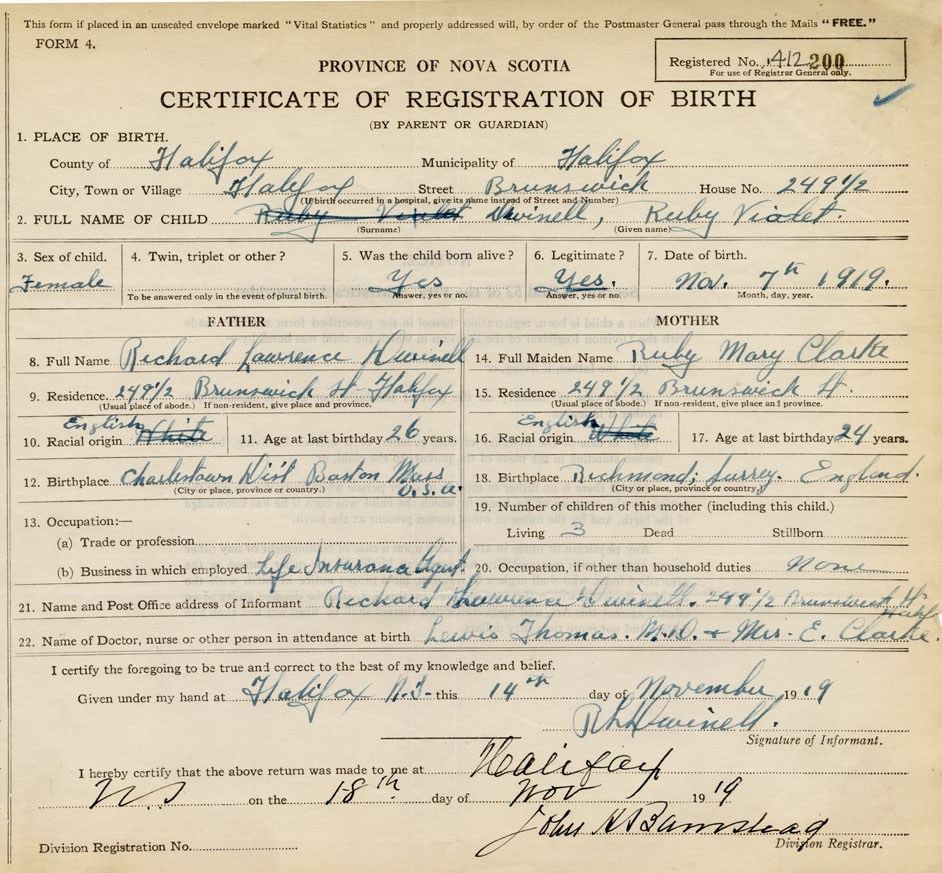 This form if placed in an unsealed envelope marked "Vital Statistics" and properly addressed will, by order of the Postmaster General pass through the Mails "FREE."
FORM 4.
Registered No. 412 200
For use of Registrar General only.
PROVINCE OF NOVA SCOTIA
CERTIFICATE OF REGISTRATION OF BIRTH
(BY PARENT OR GUARDIAN)
1. PLACE OF BIRTH.
County of Halifax Municipality of Halifax
City, Town or Village Halifax Street Brunswick House No. 249 1/2
(If birth occurred in a hospital, give its name instead of Street and Number)
2. FULL NAME OF CHILD Ruby Violet Dwinell, Ruby Violet.
(Surname) (Given name)
3. Sex of child. 4. Twin, triplet or other? 5. Was the child born alive? 6. Legitimate? 7. Date of birth.
Female Yes Yes. Nov. 7th 1919.
To be answered only in the event of plural birth. Answer, yes or no. Answer, yes or no. Month, day, year.
FATHER MOTHER
8. Full Name Richard Lawrence Dwinell 14. Full Maiden Name Ruby Mary Clarke
9. Residence. 249 1/2 Brunswick St Halifax 15. Residence 249 1/2 Brunswick St.
(Usual place of abode.) If non-resident, give place and province. (Usual place of abode.) If non-resident, give place and province.
English English
10. Racial origin White 11. Age at last birthday 26 years. 16. Racial origin White 17. Age at last birthday 24 years.
12. Birthplace Charlestown Dist Boston Mass U.S.A. 18. Birthplace Richmond; Surrey. England.
(City or place, province or country.) (City or place, province or country)
13. Occupation:— 19. Number of children of this mother (including this child.)
(a) Trade or profession Living 3 Dead Stillborn
(b) Business in which employed Life Insurance Agent 20. Occupation, if other than household duties None
21. Name and Post Office address of Informant Richard Lawrence Dwinell. 249 1/2 Brunswick St Halifx
22. Name of Doctor, nurse or other person in attendance at birth Lewis Thomas. M.D. + Mrs. E. Clarke.
I certify the foregoing to be true and correct to the best of my knowledge and belief.
Given under my hand at Halifax N.S. this 14th day of November 1919
R L Dwinell.
Signature of Informant.
I hereby certify that the above return was made to me at Halifax
N.S on the 18th day of Nov 1919
John H Barnstead
Division Registration No. Division Registrar.